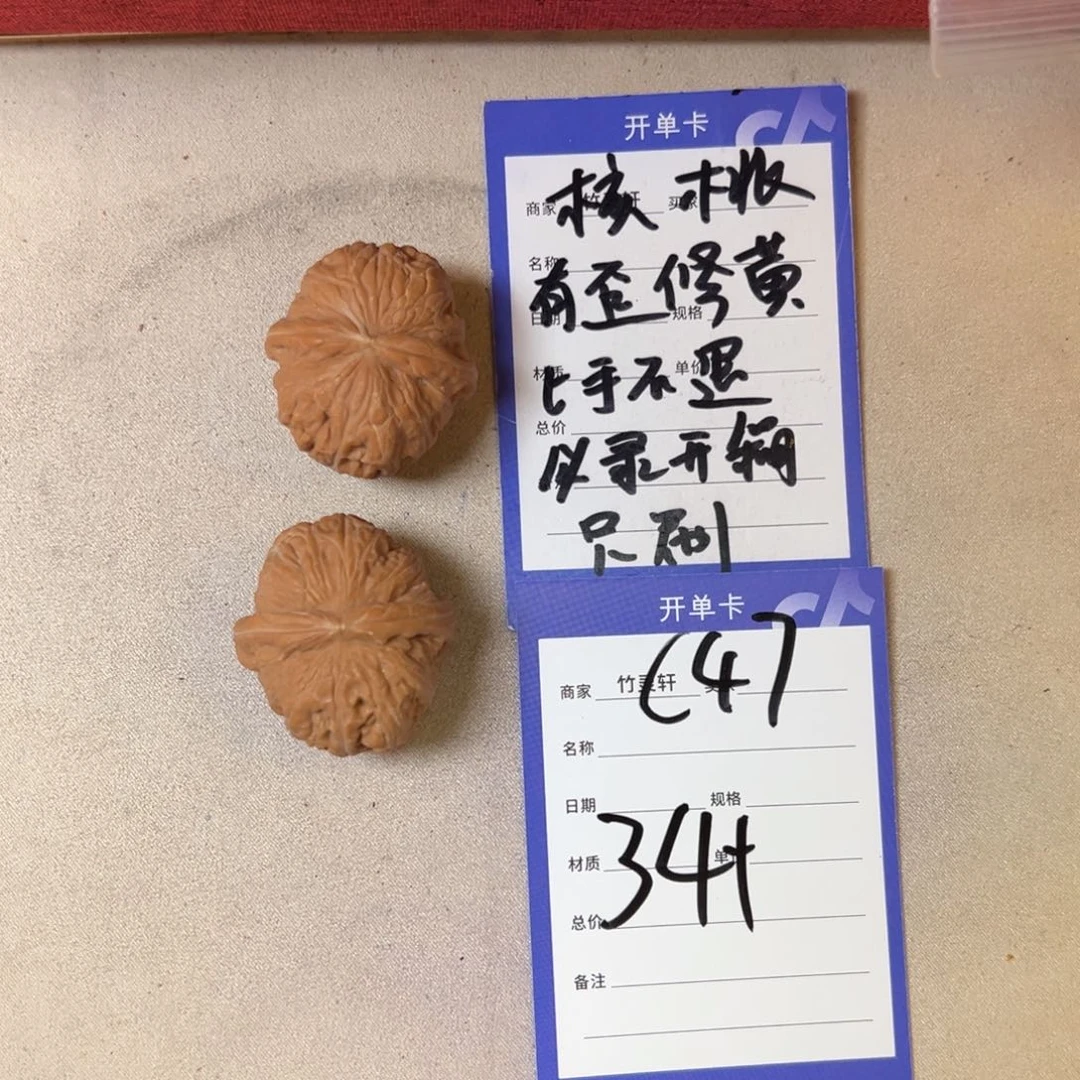 开单卡
核桃
商家 买家
名称
有歪修黄
日期 规格
上手不退
材质 单价
总价
必录开箱
只刷
开单卡
(47
商家 竹灵轩
名称
日期 规格
34+
材质 单
总价
备注